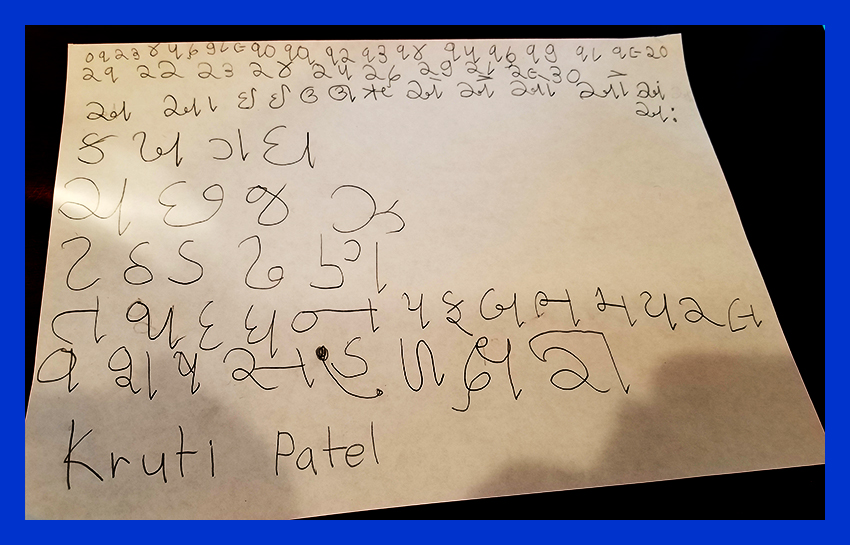 ૦ ૧ ૨ ૩ ૪ ૫ ૬ ૭ ૮ ૯ ૧૦ ૧૧ ૧૨ ૧૩ ૧૪ ૧૫ ૧૬ ૧૭ ૧૮ ૧૯ ૨૦
૨૧ ૨૨ ૨૩ ૨૪ ૨૫ ૨૬ ૨૭ ૨૮ ૨૯ ૩૦
અ આ ઇ ઈ ઉ ઊ ઋ એ ઐ ઓ ઔ અં
અઃ
ક ખ ગ ઘ
ચ છ જ ઝ
ટ ઠ ડ ઢ ણ
ત થ દ ધ ન પ ફ બ ભ મ ય ર લ
વ શ ષ સ હ ળ ક્ષ જ્ઞ
Kruti Patel